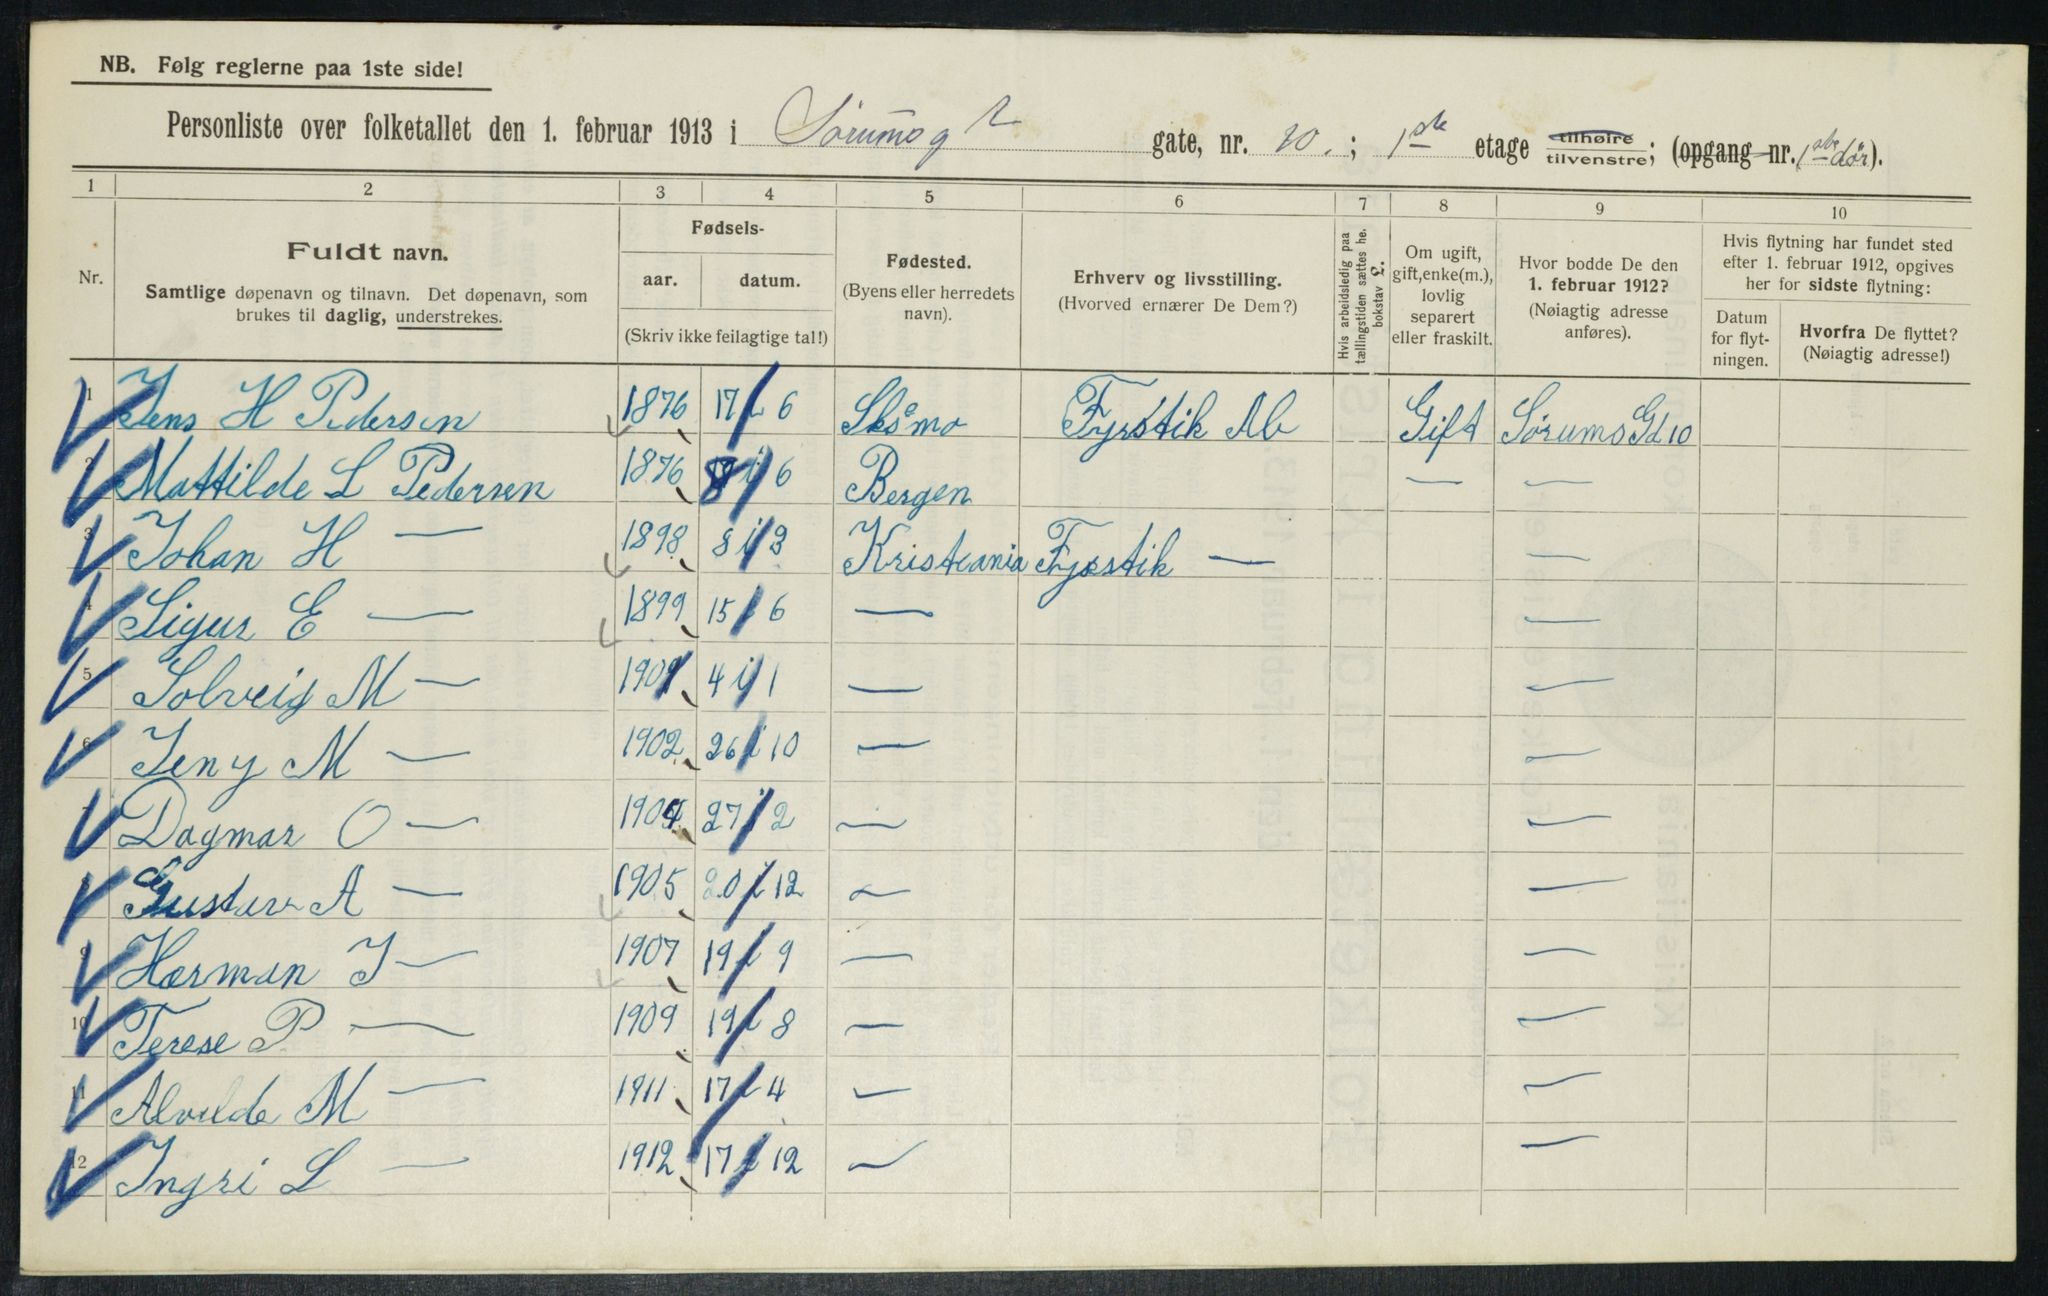 NB. Følg reglerne paa 1ste side!
Personliste over folketallet den 1. februar 1913 i Sørumsg gate, nr. 20. ; 1ste etage tilhøire tilvenstre; (opgang nr. 1 dør).
1 2 3 4 5 6 7 8 9 10
Nr.
Fuldt navn.
Samtlige døpenavn og tilnavn. Det døpenavn, som
brukes til daglig, understrekes.
Fødsels-
aar. datum.
(Skriv ikke feilagtige tal!)
Fødested.
(Byens eller herredets
navn).
Erhverv og livsstilling.
(Hvorved ernærer De Dem?)
Hvis arbeidsledig paa
tællingstiden sættes he.
bokstav L.
Om ugift,
gift, enke(m.),
lovlig
separert
eller fraskilt.
Hvor bodde De den
1. februar 1912?
(Nøiagtig adresse
anføres).
Hvis flytning har fundet sted
efter 1. februar 1912, opgives
her for sidste flytning:
Datum
for flyt-
ningen.
Hvorfra De flyttet?
(Nøiagtig adresse!)
1 Jens H Pedersen 1876 17 / 6 Skåmo Fyrstik Ab Gift Sørums Gd 10
2 Mattilde L Pedersen 1876 i 6 Bergen — —
3 Johan H — 1898 8 i 3 Kristiania Fyrstik — —
4 Sigur E — 1899 15 / 6 — —
5 Solveig M — 4 i 1 — —
6 Jeny M — 1902 26 i 10 — —
7 Dagmar O — 1904 27 i 2 — —
8 Gustav A — 1905 20 i 12 — —
9 Herman J — 1907 19 i 9 — —
10 Terese P — 1909 19 i 8 — —
11 Alvilde M — 1911 17 i 4 — —
12 Ingri L — 1912 17 i 12 — —